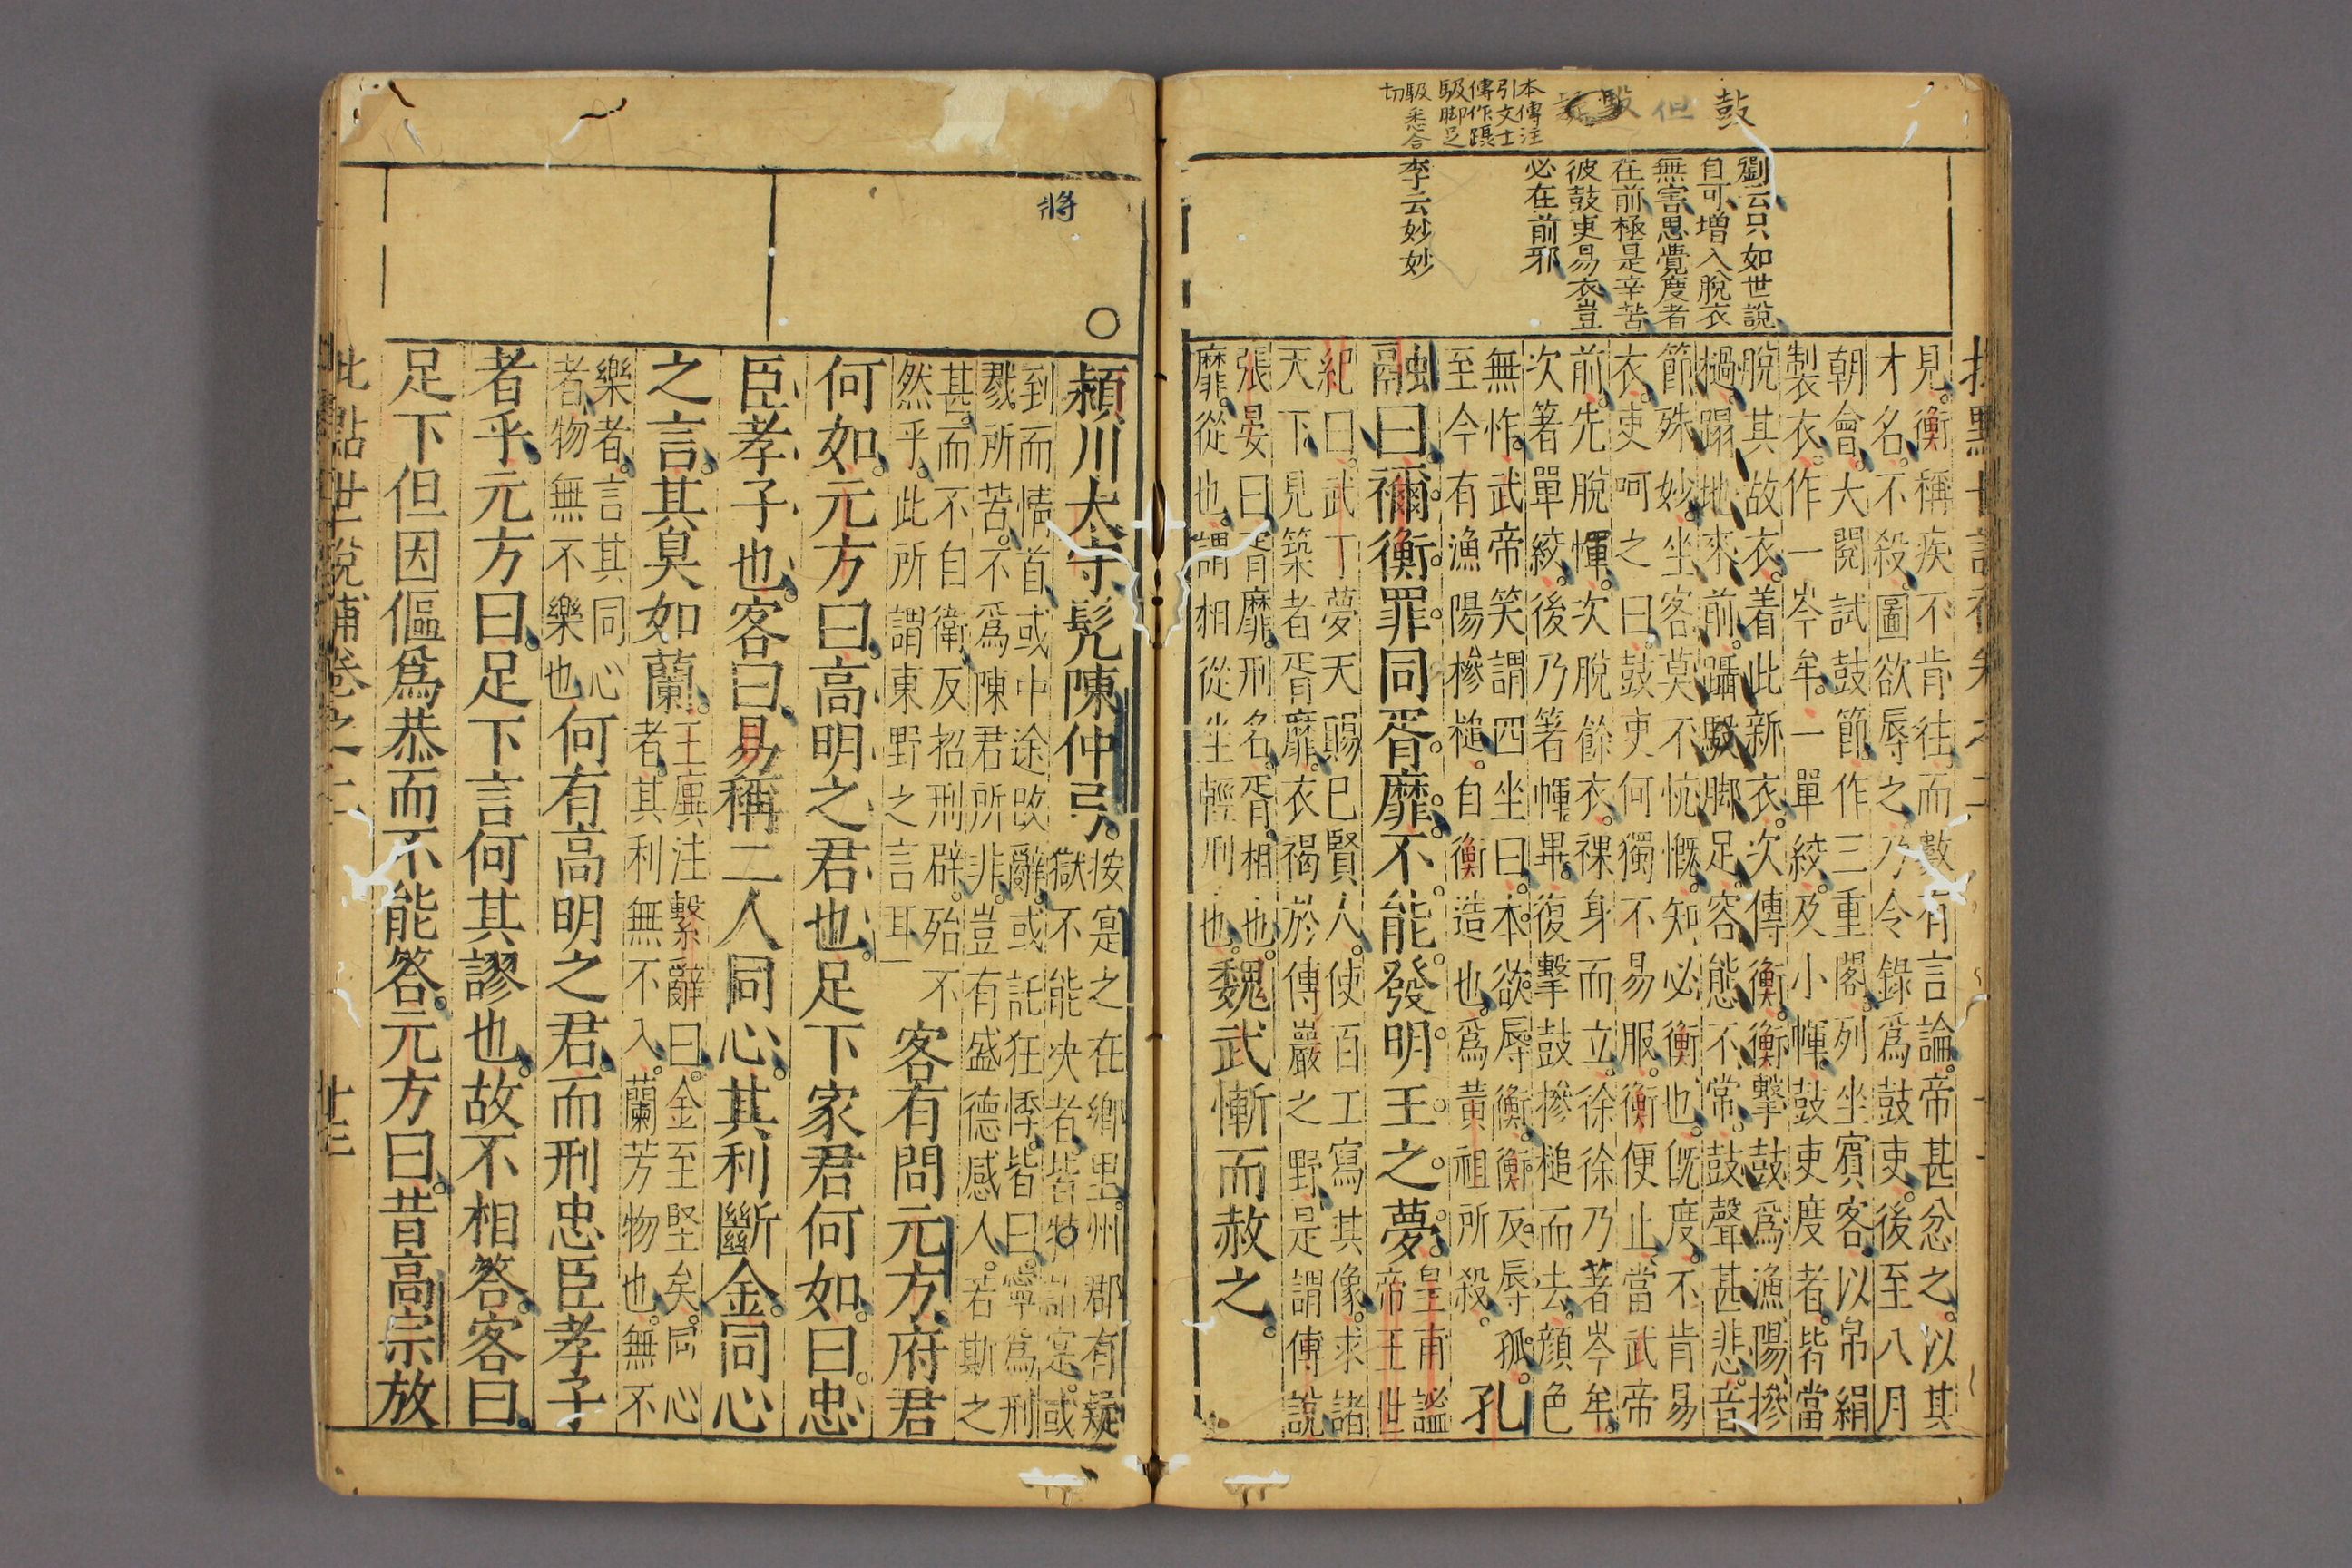 鼓
但
本傳注
引文士
傳作䠞
馺脚足
馺悉合
切
劉云只如世說
自可增入脫衣
無害思覺度者
在前極是辛苦
彼鼓吏易衣豈
必在前邪
李云妙妙
見衡稱疾不肯往而數有言論帝甚忿之以其
才名不殺圖欲辱之乃令錄爲鼓吏後至八月
朝會大閱試鼓節作三重閣列坐賓客以帛絹
製衣作一岑牟一單絞及小㡓鼓吏度者皆當
脫其故衣着此新衣次傳衡衡擊鼓爲漁陽摻
檛蹋地來前躡馺脚足容態不常鼓聲甚悲音
節殊妙坐客莫不忼慨知必衡也旣度不肯易
衣吏呵之曰鼓吏何獨不易服衡便止當武帝
前先脫㡓次脫餘衣裸身而立徐徐乃著岑牟
次著單絞後乃著㡓畢復擊鼓摻槌而去顏色
無怍武帝笑謂四坐曰本欲辱衡衡反辱孤
至今有漁陽摻槌自衡造也爲黃祖所殺
孔
融曰禰衡罪同胥靡不能發明王之夢
皇甫謐
帝王世
紀曰武丁夢天賜已賢人使百工寫其像求諸
天下見築者胥靡衣褐於傅巖之野是謂傅說
張晏曰胥靡刑名胥相也
靡從也謂相從坐輕刑也
魏武慚而赦之
將
潁川太守髡陳仲弓
按寔之在鄉里州郡有疑
獄不能决者皆將詣寔或
到而情首或中途改辭或託狂悸皆曰寧爲刑
戮所苦不爲陳君所非豈有盛德感人若斯之
甚而不自衛反招刑辟殆不
然乎此所謂東野之言耳
客有問元方府君
何如元方曰高明之君也足下家君何如曰忠
臣孝子也客曰易稱二人同心其利斷金同心
之言其臭如蘭
王廙注繫辭曰金至堅矣同心
者其利無不入蘭芳物也無不
樂者言其同心
者物無不樂也
何有高明之君而刑忠臣孝子
者乎元方曰足下言何其謬也故不相答客曰
足下但因傴爲恭而不能答元方曰昔高宗放
批點世說補卷之二
廿三